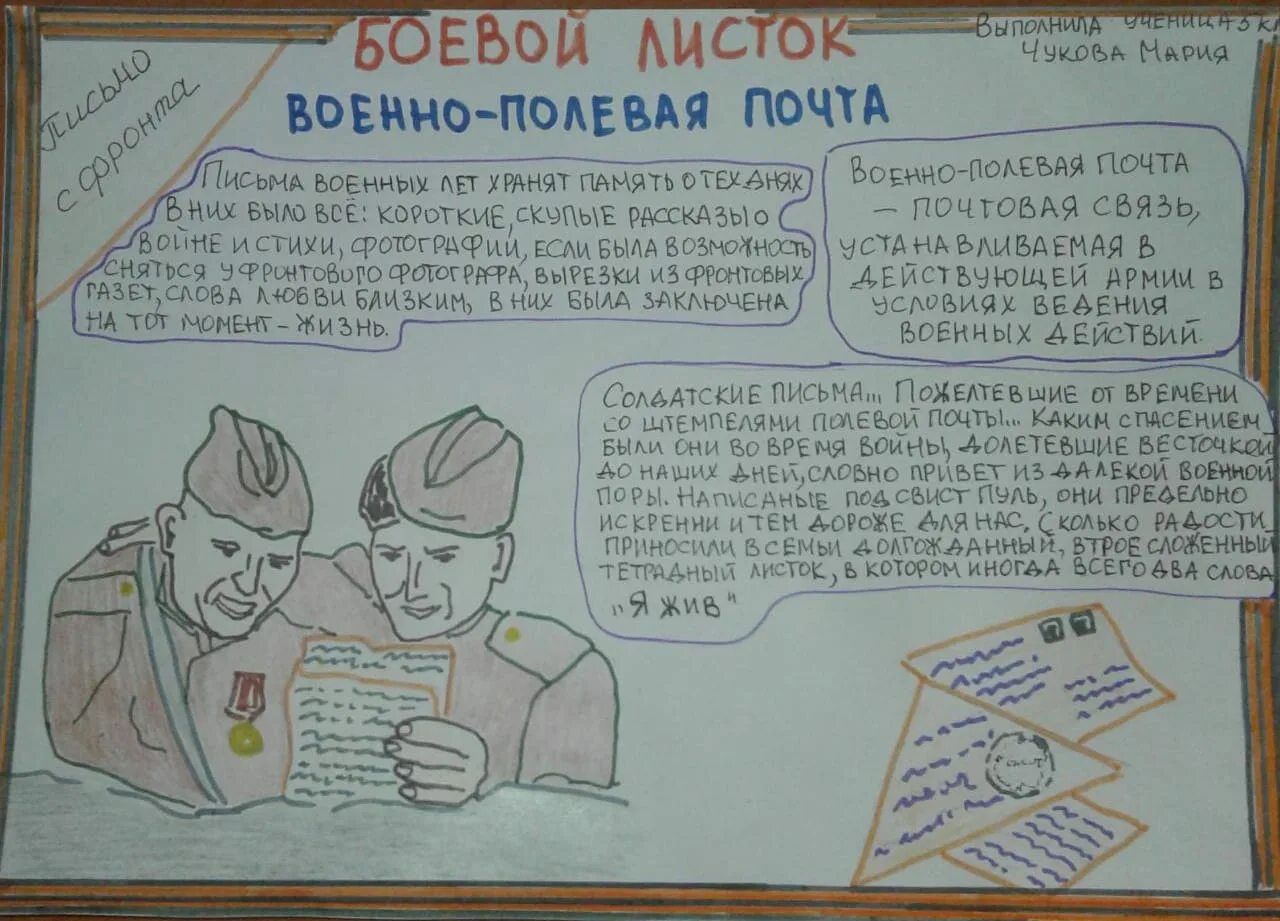 Письмо
с фронта
БОЕВОЙ ЛИСТОК
ВОЕННО-ПОЛЕВАЯ ПОЧТА
Выполнила ученица 5 кл
Чукова Мария
Письма военных лет хранят память о тех днях
В них было всё: короткие, скупые рассказы о
войне и стихи, фотографии, если была возможность
сняться у фронтового фотографа, вырезки из фронтовых
газет, слова любви близким, в них была заключена
на тот момент – жизнь.
Военно-полевая почта
– почтовая связь,
устанавливаемая в
действующей армии в
условиях ведения
военных действий.
Солдатские письма... Пожелтевшие от времени
со штемпелями полевой почты... Каким спасением
были они во время войны, долетевшие весточкой
до наших дней, словно привет из далекой военной
поры. Написаные под свист пуль, они предельно
искренни и тем дороже для нас. Сколько радости
приносили в семьи долгожданный, втрое сложенный
тетрадный листок, в котором иногда всего два слова
„Я жив"